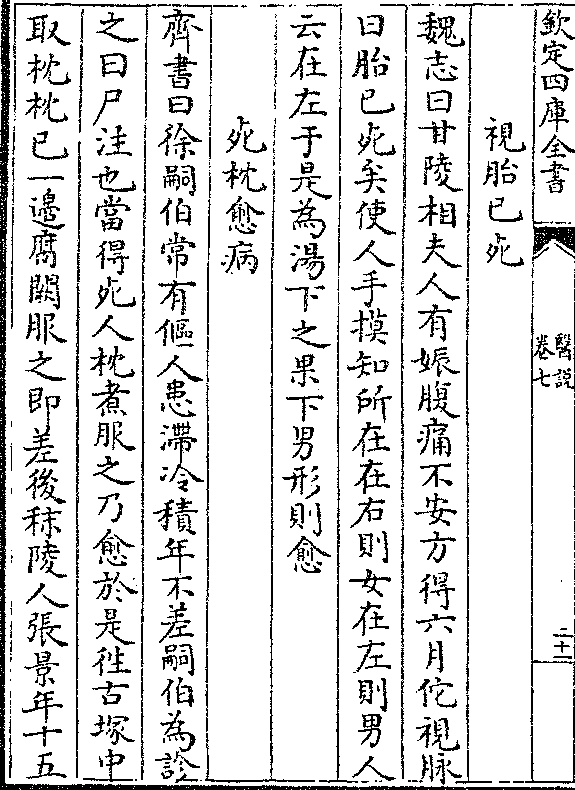 欽定四庫全書
醫説
卷七
二十一
視胎已死
魏志曰甘陵相夫人有娠腹痛不安方得六月佗視脉
曰胎已死矣使人手摸知所在在右則女在左則男人
云在左于是為湯下之果下男形則愈
死枕愈病
齊書曰徐嗣伯常有傴人患滯冷積年不差嗣伯為診
之曰尸注也當得死人枕煮服之乃愈於是徃古塚中
取枕枕已一邉腐闕服之即差後秣陵人張景年十五